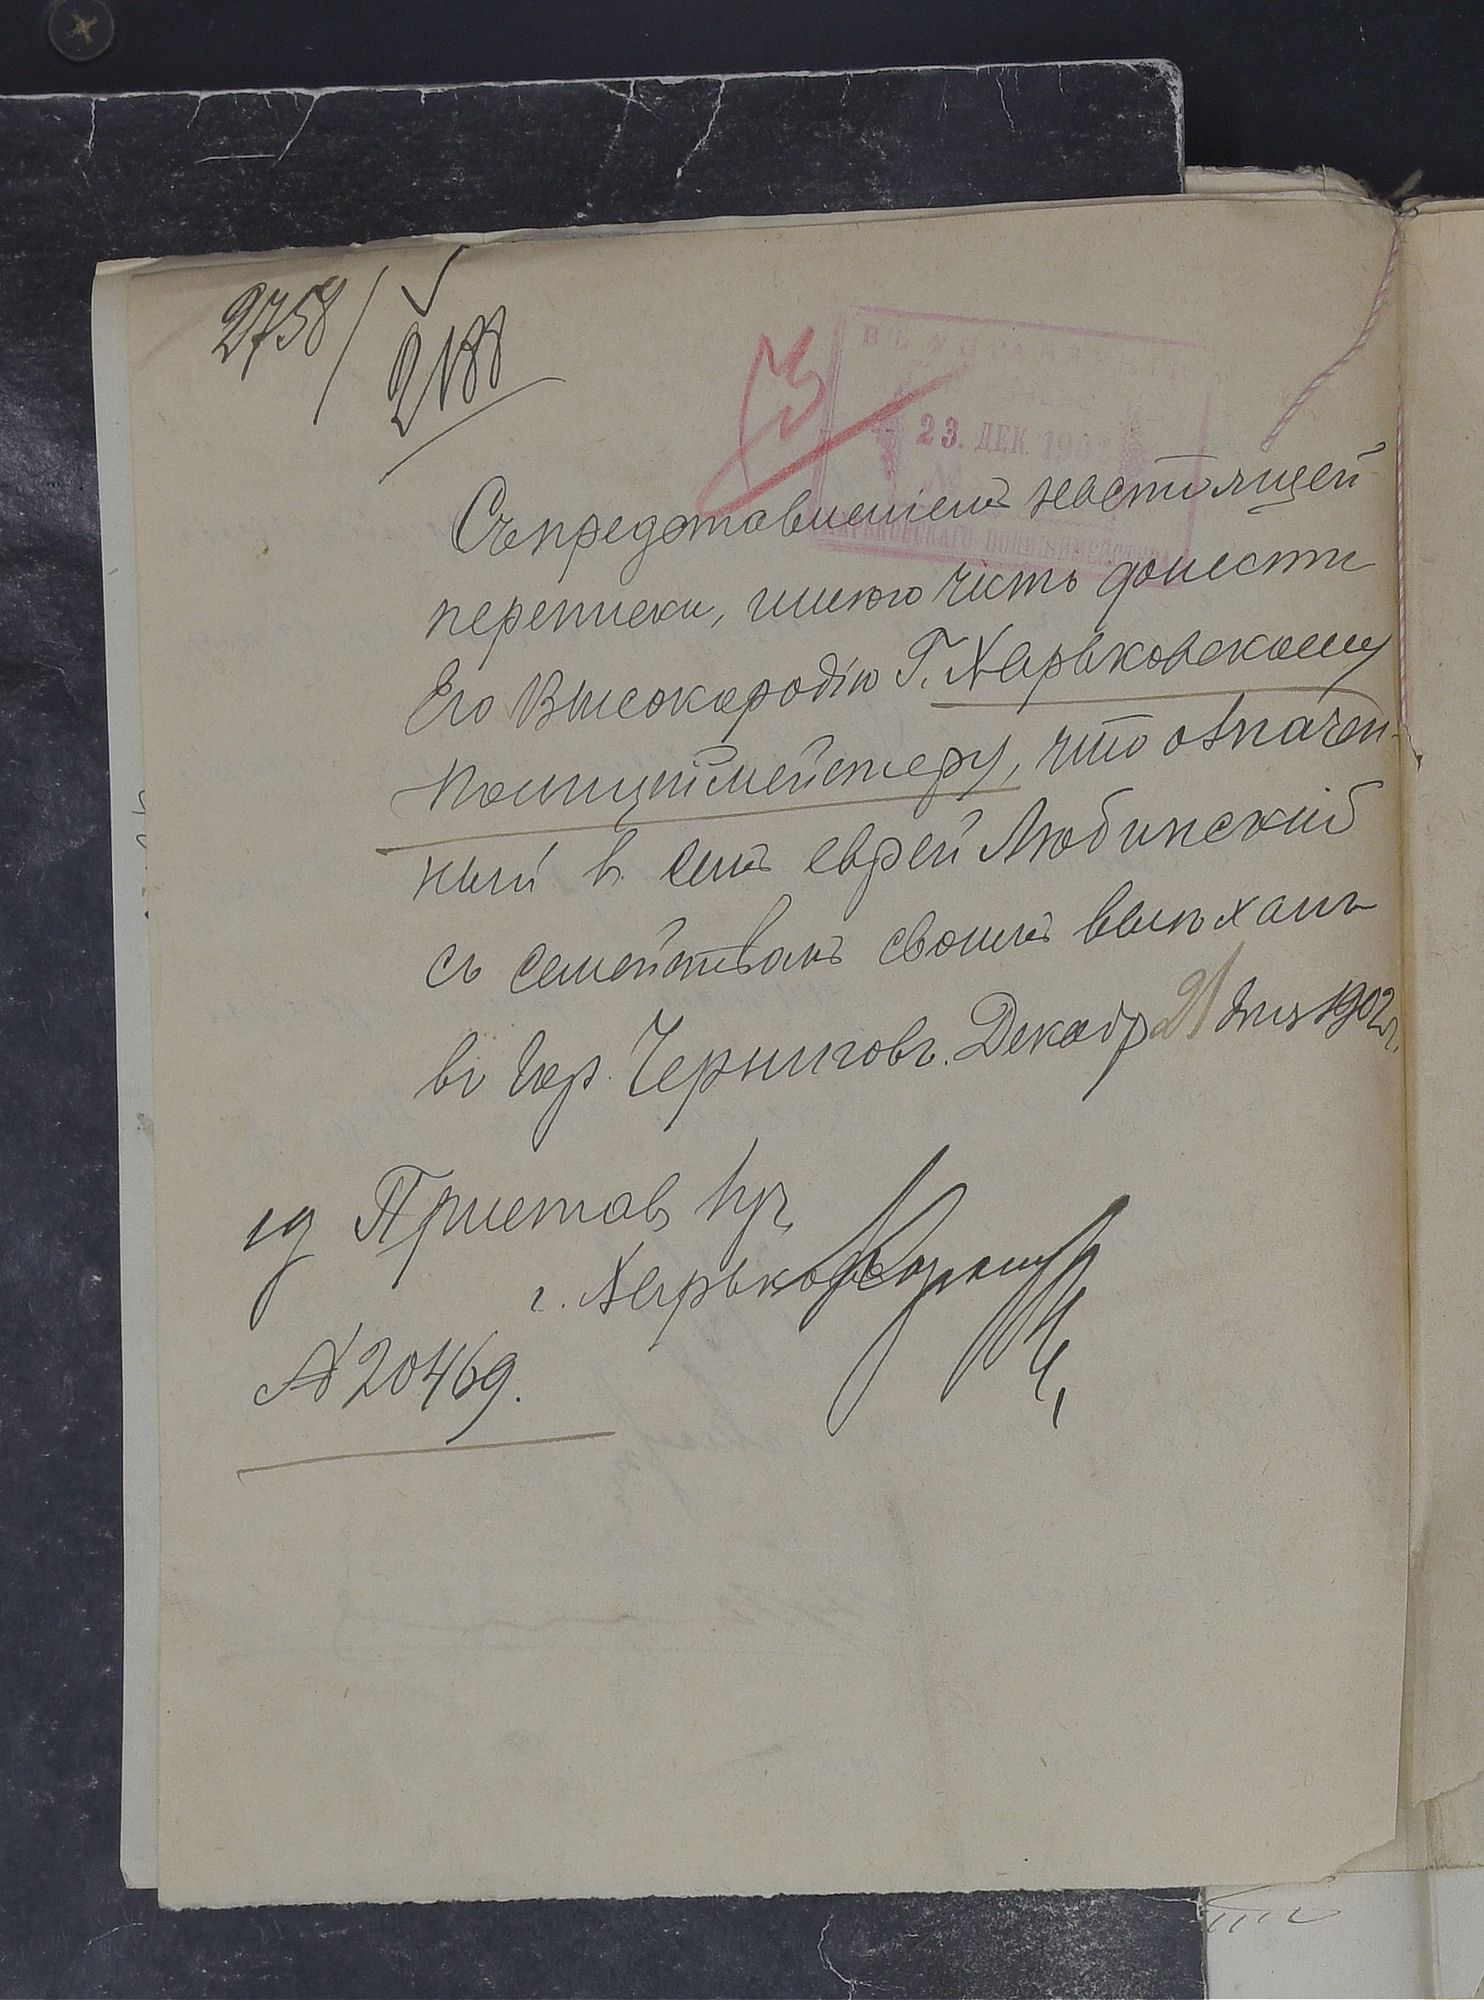 2758/
2188
23. ДЕК. 190
ХАРЬКОВСКАГО ПОЛИЦІЙМЕЙСТЕРА
Съ представленіемъ настоящей
переписки, имѣю честь донести
Его Высокородію Г. Харьковскому
Полиціймейстеру, что означен-
ный в семъ еврей Любинскій
съ семействомъ своимъ выѣхалъ
въ гор. Черниговъ. Декабр 21 дня 1902 г.
ид Пристав
г. Харькова
№ 20469.